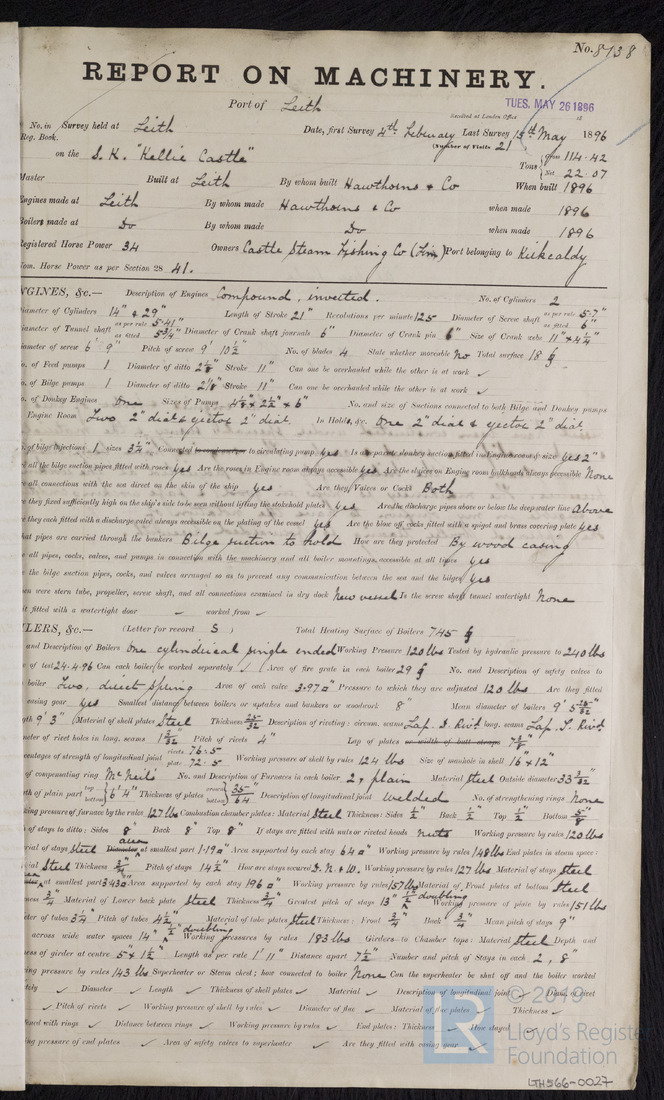 No. 8738
REPORT ON MACHINERY.
Port of Leith
TUES. MAY 26 1896
Received at London Office
No. in Survey held at Leith Date, first Survey 4th February Last Survey 13th May 1896
Reg. Book. (Number of Visits 21
on the S.K. "Kellie Castle" Tons Gross 114.42
Net 22.07
Master Built at Leith By whom built Hawthorns & Co When built 1896
Engines made at Leith By whom made Hawthorns & Co when made 1896
Boilers made at Do By whom made Do when made 1896
Registered Horse Power 34 Owners Castle Steam Fishing Co (Lim) Port belonging to Kirkcaldy
Nom. Horse Power as per Section 28 41.
ENGINES, &c.— Description of Engines Compound, inverted. No. of Cylinders 2
Diameter of Cylinders 14" & 29" Length of Stroke 21" Revolutions per minute 125 Diameter of Screw shaft as per rule 5.7" as fitted 6"
Diameter of Tunnel shaft as per rule 5.41" as fitted 5 3/4" Diameter of Crank shaft journals 6" Diameter of Crank pin 6" Size of Crank webs 11" x 4 1/4"
Diameter of screw 6' 9" Pitch of screw 9' 10 1/2" No. of blades 4 State whether moveable No Total surface 18
No. of Feed pumps 1 Diameter of ditto 2 1/8" Stroke 11" Can one be overhauled while the other is at work ✓
No. of Bilge pumps 1 Diameter of ditto 2 1/8" Stroke 11" Can one be overhauled while the other is at work ✓
No. of Donkey Engines One Sizes of Pumps 4 1/2 x 2 1/2 x 6" No. and size of Suctions connected to both Bilge and Donkey pumps
Engine Room Two 2" diar & ejector 2" diar. In Holds, &c. One 2" diar & ejector 2" diar.
of bilge injections 1 sizes 3 1/4" Connected to circulating pump yes Is a separate donkey suction fitted in Engine room & size yes 2"
all the bilge suction pipes fitted with roses yes Are the roses in Engine room always accessible yes Are the sluices on Engine room bulkheads always accessible None
all connections with the sea direct on the skin of the ship yes Are they Valves or Cocks Both
they fixed sufficiently high on the ship's side to be seen without lifting the stokehold plates yes Are the discharge pipes above or below the deep water line Above
they each fitted with a discharge valve always accessible on the plating of the vessel yes Are the blow off cocks fitted with a spigot and brass covering plate yes
hat pipes are carried through the bunkers Bilge suction to hold How are they protected By wood casing
all pipes, cocks, valves, and pumps in connection with the machinery and all boiler mountings, accessible at all times yes
the bilge suction pipes, cocks, and valves arranged so as to prevent any communication between the sea and the bilges yes
en were stern tube, propeller, screw shaft, and all connections examined in dry dock New vessel Is the screw shaft tunnel watertight None
it fitted with a watertight door ✓ worked from ✓
ILERS, &c.— (Letter for record S ) Total Heating Surface of Boilers 745
and Description of Boilers One cylindrical single ended Working Pressure 120 lbs Tested by hydraulic pressure to 240 lbs
of test 24.4.96 Can each boiler be worked separately ✓ Area of fire grate in each boiler 29 No. and Description of safety valves to
boiler Two, direct spring Area of each valve 3.97 □" Pressure to which they are adjusted 120 lbs Are they fitted
easing gear yes Smallest distance between boilers or uptakes and bunkers or woodwork 8" Mean diameter of boilers 9' 5 5/32"
gth 9' 3" Material of shell plates Steel Thickness 25/32 Description of riveting: circum. seams Lap. D. Rivd. long. seams Lap. T. Rivd.
meter of rivet holes in long. seams 1 3/32" Pitch of rivets 4" Lap of plates or width of butt straps 7 3/8"
centages of strength of longitudinal joint rivets 76.5 plate 72.5 Working pressure of shell by rules 124 lbs Size of manhole in shell 16" x 12"
of compensating ring McNeil's No. and Description of Furnaces in each boiler 2, plain Material Steel Outside diameter 33 3/32"
gth of plain part top bottom 6' 4" Thickness of plates crown bottom 35/64 Description of longitudinal joint welded No. of strengthening rings None
king pressure of furnace by the rules 127 lbs Combustion chamber plates: Material Steel Thickness: Sides 1/2" Back 1/2" Top 1/2" Bottom 5/8"
h of stays to ditto: Sides 8" Back 8" Top 8" If stays are fitted with nuts or riveted heads Nuts Working pressure by rules 120 lbs
erial of stays Steel area Diameter at smallest part 1.19 □" Area supported by each stay 64 □" Working pressure by rules 148 lbs End plates in steam space:
ial Steel Thickness 3/4" Pitch of stays 14 1/2" How are stays secured D.N. & W. Working pressure by rules 127 lbs Material of stays Steel
at smallest part 3.43 □" Area supported by each stay 196 □" Working pressure by rules 157 lbs Material of Front plates at bottom Steel
ness 3/4" Material of Lower back plate Steel Thickness 3/4" Greatest pitch of stays 13" 1/2" doubling Working pressure of plate by rules 151 lbs
eter of tubes 3 1/4" Pitch of tubes 4 1/2" Material of tube plates Steel Thickness: Front 3/4" Back 3/4" Mean pitch of stays 9"
across wide water spaces 14" 1/2" doubling Working pressures by rules 183 lbs Girders to Chamber tops: Material Steel Depth and
ness of girder at centre 5" x 1 1/2" Length as per rule 1' 11" Distance apart 7 1/2" Number and pitch of Stays in each 2, 8"
ing pressure by rules 143 lbs Superheater or Steam chest; how connected to boiler None Can the superheater be shut off and the boiler worked
tely ✓ Diameter ✓ Length ✓ Thickness of shell plates ✓ Material ✓ Description of longitudinal joint ✓ Diam. of rivet
✓ Pitch of rivets ✓ Working pressure of shell by rules ✓ Diameter of flue ✓ Material of flue plates ✓ Thickness ✓
ened with rings ✓ Distance between rings ✓ Working pressure by rules ✓ End plates: Thickness ✓ How stayed
ng pressure of end plates ✓ Area of safety valves to superheater ✓ Are they fitted with easing gear ✓
LR © 2019
Lloyd's Register
Foundation
LTH566-0027